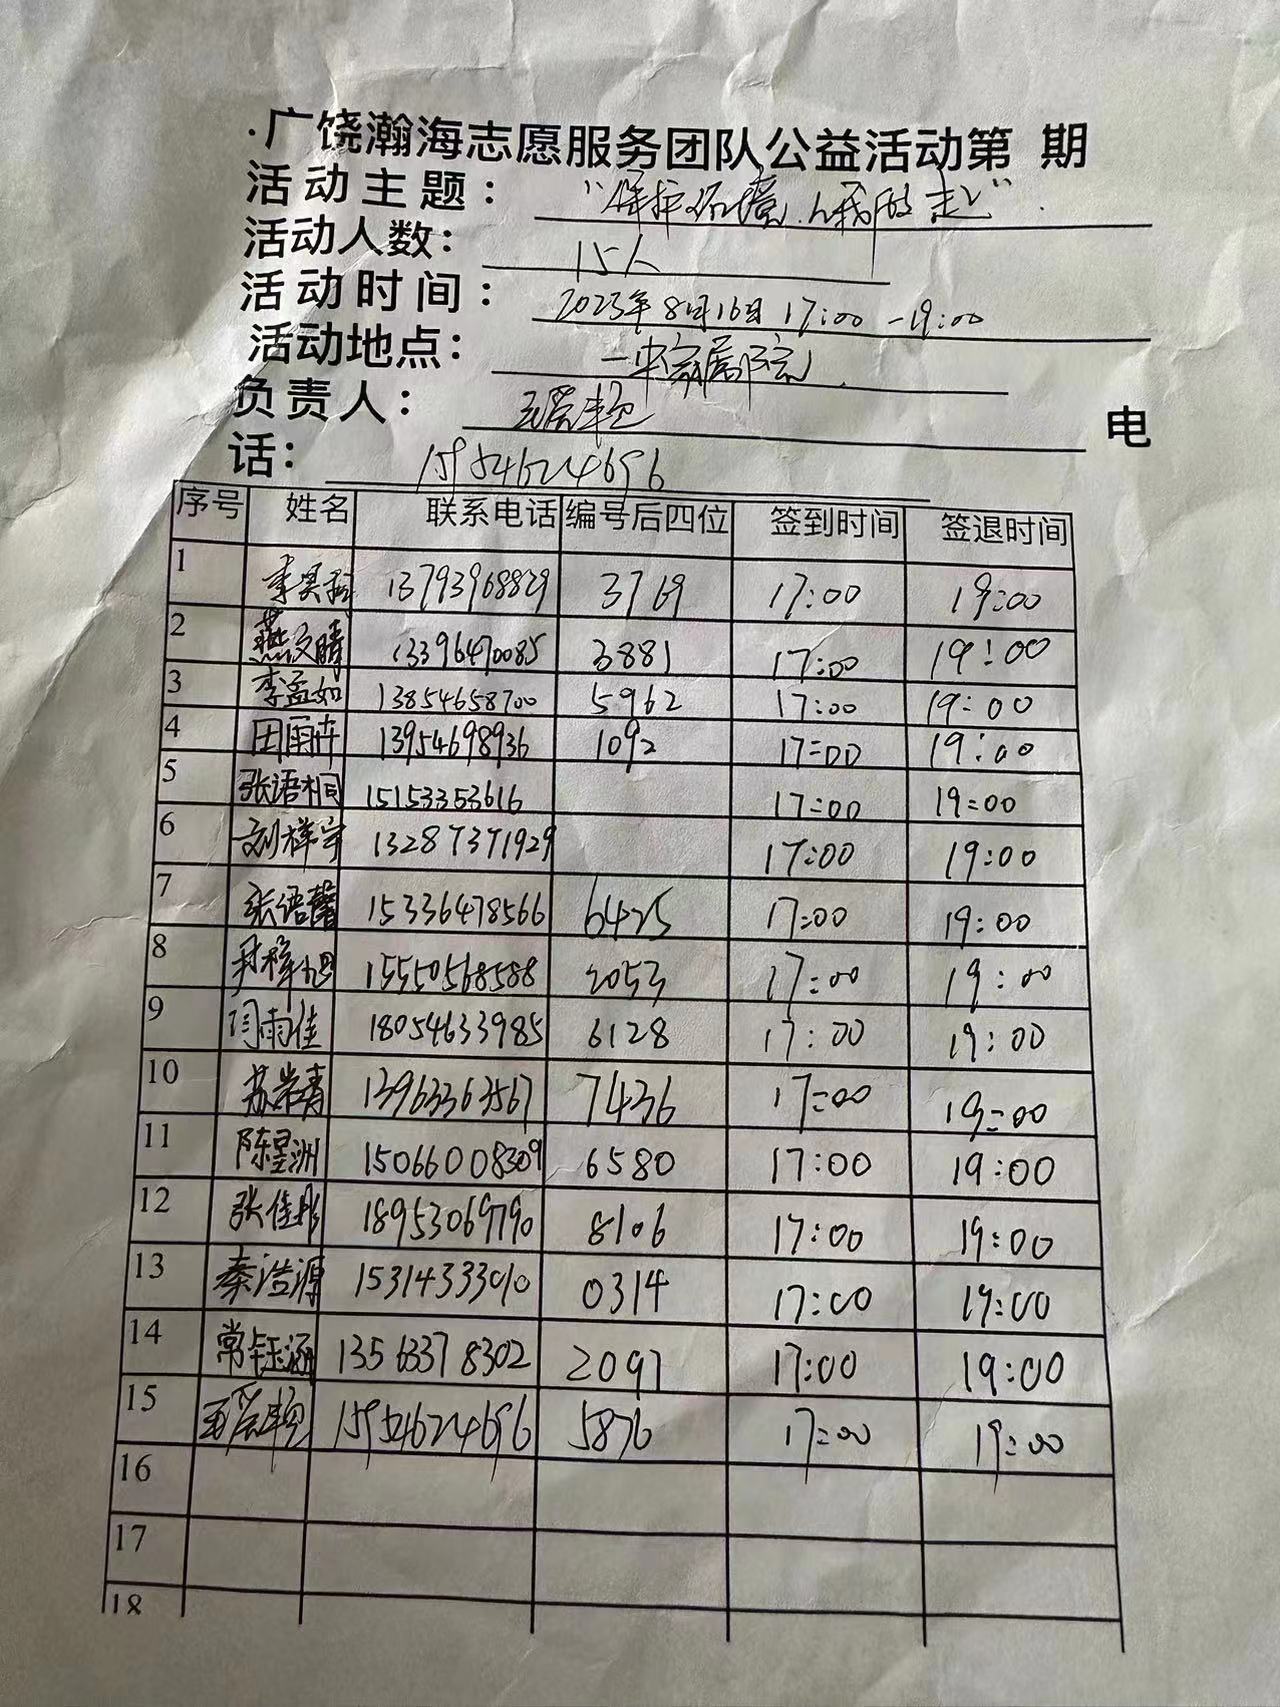 .广饶瀚海志愿服务团队公益活动第 期
活动主题: “保护环境,从我做起”.
活动人数: 15人
活动时间: 2023年8月16日 17:00-19:00
活动地点: 一中家属院
负责人: 电
话: 15954624696
序号 姓名 联系电话 编号后四位 签到时间 签退时间
1 李昊 13793968829 3769 17:00 19:00
2 燕文晴 13396470085 3881 17:00 19:00
3 李孟如 13854658700 5962 17:00 19:00
4 田雨卉 13954698936 1092 17:00 19:00
5 张语桐 15153353616 17:00 19:00
6 刘梓宇 13287371929 17:00 19:00
7 张语馨 15336478566 6425 17:00 19:00
8 尹梓旭 15550568588 2053 17:00 19:00
9 闫雨佳 18054633985 6128 17:00 19:00
10 苏 13963363567 7436 17:00 19:00
11 陈星洲 15066008309 6580 17:00 19:00
12 张佳彤 18953069790 8106 17:00 19:00
13 秦浩源 15314333010 0314 17:00 19:00
14 常钰涵 13563378302 2097 17:00 19:00
15 15954624696 5876 17:00 19:00
16
17
18